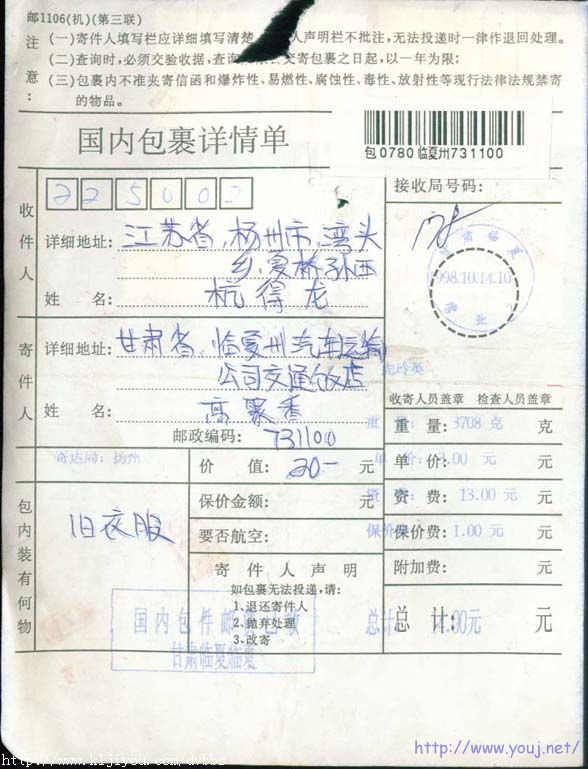 邮1106(机)(第三联)
注意:
(一)寄件人填写栏应详细填写清楚 人声明栏不批注,无法投递时一律作退回处理。
(二)查询时,必须交验收据,查询 交寄包裹之日起,以一年为限;
(三)包裹内不准夹寄信函和爆炸性、易燃性、腐蚀性、毒性、放射性等现行法律法规禁寄的物品。
国内包裹详情单
包0780 临夏州731100
225002
接收局号码:
收件人
详细地址: 江苏省,杨州市,湾头
乡,夏桥孙西
姓 名: 杭得龙
甘肃临夏
1998.10.14.10
营业
寄件人
详细地址: 甘肃省,临夏州汽车运输
公司交通饭店
姓 名: 高聚香
邮政编码: 731100
收寄人员盖章 检查人员盖章
重 量: 3708 克 克
寄达局: 扬州
价 值: 20- 元
单 价: .00 元 元
保价金额: 元
资 费: 13.00 元 元
包内装有何物
旧衣服
要否航空:
保价费: 1.00 元 元
寄件人声明
附加费: 元
如包裹无法投递,请:
1、退还寄件人
2、抛弃处理
3、改寄
总计 总 计: .00元 元
国内包件邮费已收
甘肃临夏临夏
http://www.kljiyou.com/dvbbs
http://www.youj.net/